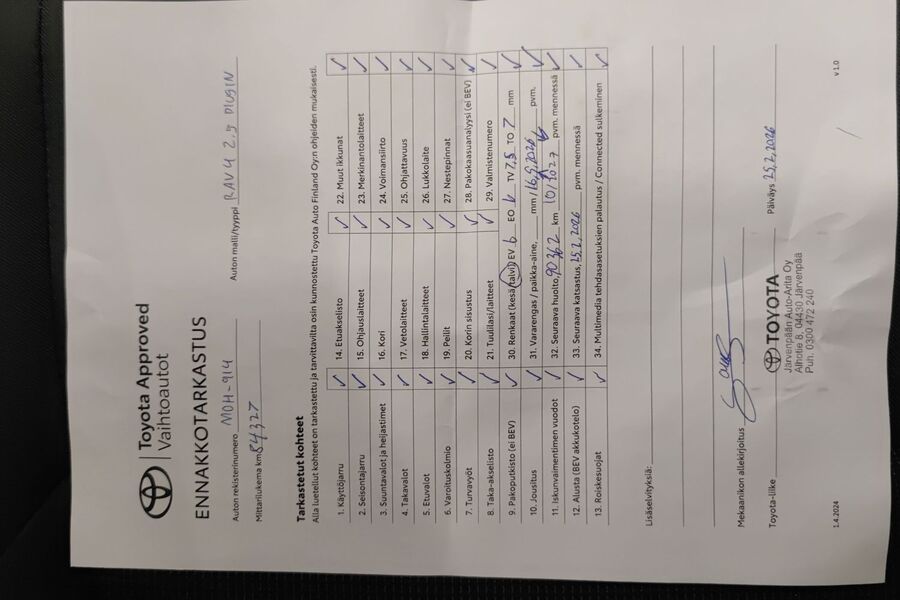 Toyota Approved
Vaihtoautot
ENNAKKOTARKASTUS
Auton rekisterinumero MOH-914
Auton malli/tyyppi RAV4 2,5 PLUGIN
Mittarilukema km 84327
Tarkastetut kohteet
Alla luetellut kohteet on tarkastettu ja tarvittavilta osin kunnostettu Toyota Auto Finland Oy:n ohjeiden mukaisesti.
1. Käyttöjarru ✓
2. Seisontajarru ✓
3. Suuntavalot ja heijastimet ✓
4. Takavalot ✓
5. Etuvalot ✓
6. Varoituskolmio ✓
7. Turvavyöt ✓
8. Taka-akselisto ✓
9. Pakoputkisto (ei BEV) ✓
10. Jousitus ✓
11. Iskunvaimentimen vuodot ✓
12. Alusta (BEV akkukotelo) ✓
13. Roiskesuojat ✓
14. Etuakselisto ✓
15. Ohjauslaitteet ✓
16. Kori ✓
17. Vetolaitteet ✓
18. Hallintalaitteet ✓
19. Peilit ✓
20. Korin sisustus ✓
21. Tuulilasi/laitteet ✓
22. Muut ikkunat ✓
23. Merkinantolaitteet ✓
24. Voimansiirto ✓
25. Ohjattavuus ✓
26. Lukkolaite ✓
27. Nestepinnat ✓
28. Pakokaasuanalyysi (ei BEV) ✓
29. Valmistenumero ✓
30. Renkaat (kesä/talvi) EV 6 EO 6 TV 7,5 TO 7 mm ✓
31. Vararengas / paikka-aine, mm / 16.9.2026 pvm. ✓
32. Seuraava huolto, 90362 km 10/ pvm. mennessä ✓
33. Seuraava katsastus, 25.2.2026 pvm. mennessä ✓
34. Multimedia tehdasasetuksien palautus / Connected sulkeminen ✓
Lisäselvityksiä:
Mekaanikon allekirjoitus
Toyota-liike
TOYOTA
Järvenpään Auto-Arita Oy
Alhotie 8, 04430 Järvenpää
Puh. 0300 472 240
Päiväys 25.2.2026
1.4.2024
v 1.0